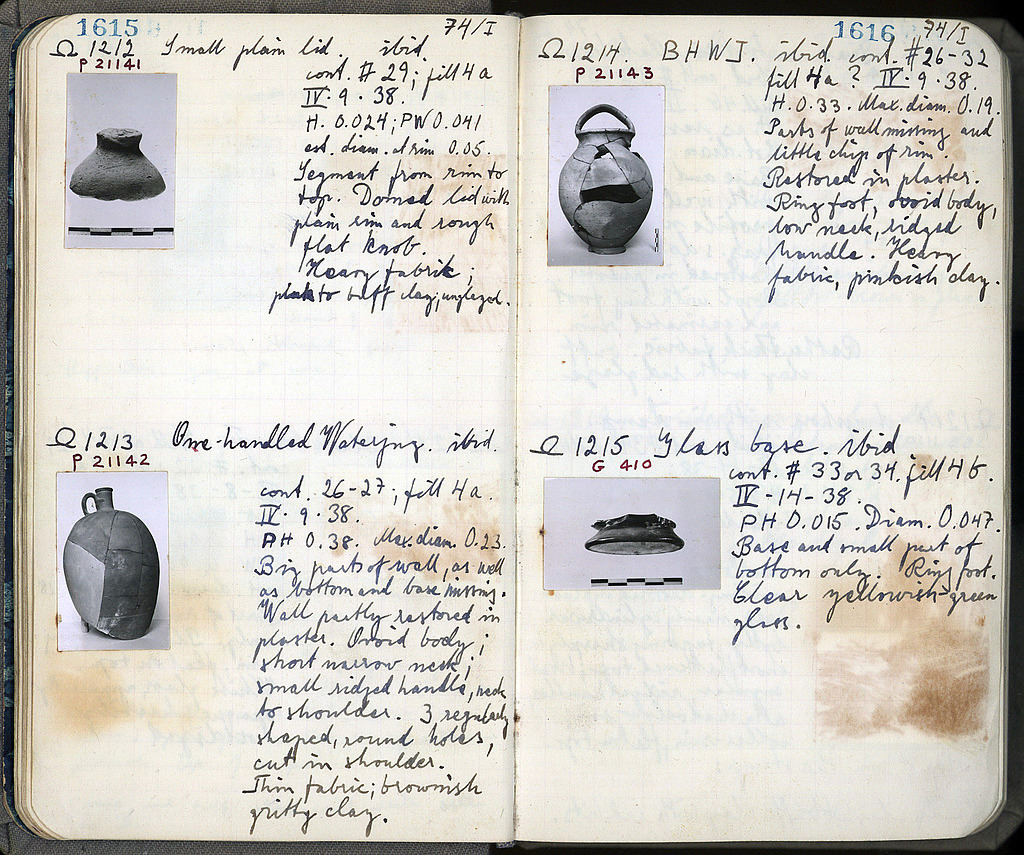 1615
74/I
Ω 1212 Small plain lid. ibid.
P 21141
cont. # 29; fill 4a
IV·9·38.
H. 0.024; PW 0.041
est. diam. at rim 0.05.
Segment from rim to
top. Domed lid with
plain rim and rough
flat knob.
Heavy fabric;
pink to buff clay; unglazed.
Ω 1213 One-handled Waterjug. ibid.
P 21142
cont. 26-27; fill 4a.
IV·9·38.
PH 0.38. Max. diam. 0.23.
Big parts of wall, as well
as bottom and base missing.
Wall partly restored in
plaster. Ovoid body;
short narrow neck;
small ridged handle, neck
to shoulder. 3 regularly
shaped, round holes,
cut in shoulder.
Thin fabric; brownish
gritty clay.
1616
74/I
Ω 1214. BHWJ. ibid. cont. #26-32
P 21143
fill 4a? IV·9·38.
H. 0.33. Max. diam. 0.19.
Parts of wall missing and
little chips of rim.
Restored in plaster.
Ring foot, ovoid body,
low neck, ridged
handle. Heavy
fabric, pinkish clay.
Ω 1215 Glass base. ibid
G 410
cont. # 33 or 34, fill 4b.
IV-14-38.
PH 0.015. Diam. 0.047.
Base and small part of
bottom only. Ring foot.
Clear yellowish-green
glass.